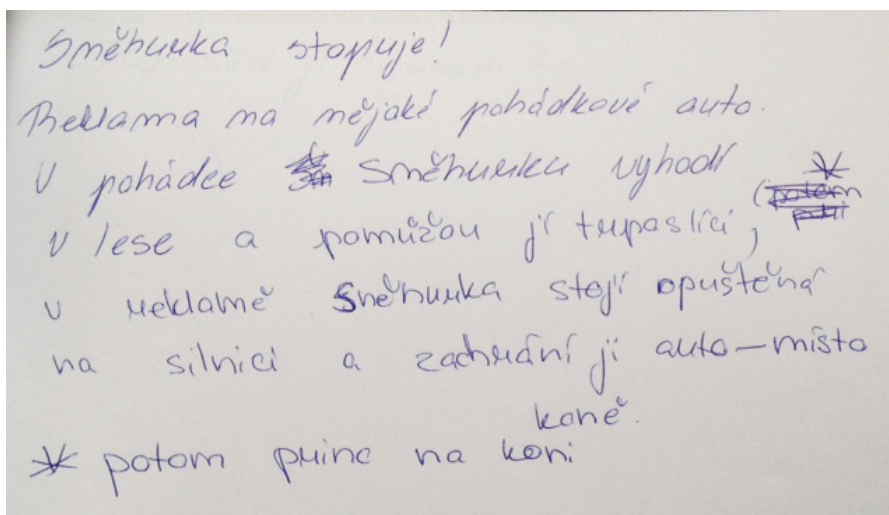 Sněhurka stopuje!
Reklama na nějaké pohádkové auto.
V pohádce Sněhurku vyhodí *
v lese a pomůžou jí trpaslíci, (potem
v reklamě Sněhurka stojí opuštěná
na silnici a zachrání ji auto – místo
koně.
* potom princ na koni